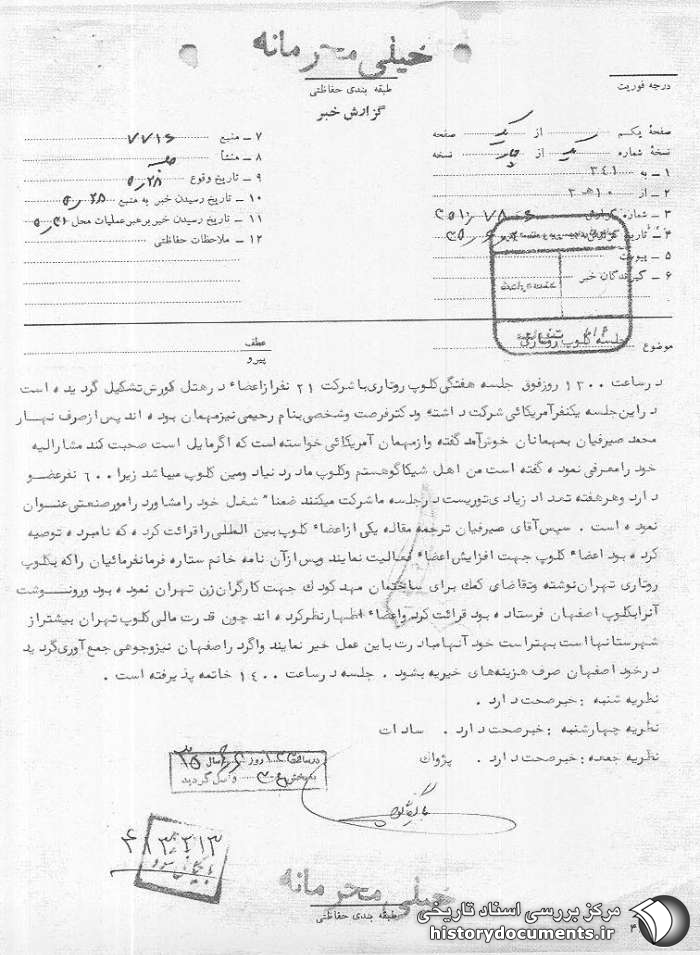 خیلی محرمانه
طبقه بندی حفاظتی
گزارش خبر
درجه فوریت
صفحه یکم از یک صفحه
نسخه شماره یک از چهار نسخه
۱ ــ به ۳۴۱
۲ ــ از ۱۰ هـ ۳
۳ ــ شماره گزارش
۴ ــ تاریخ گزارش
۵ ــ پیوست
۶ ــ گیرندگان خبر
۷ ــ منبع ۷۷۱۶
۸ ــ منشأ
۹ ــ تاریخ وقوع
۱۰ ــ تاریخ رسیدن خبر به منبع
۱۱ ــ تاریخ رسیدن خبر برهبر عملیات محل
۱۲ ــ ملاحظات حفاظتی
موضوع جلسه کلوپ روتاری
عطف
پیرو
در ساعت ۱۲۰۰ روز فوق جلسه هفتگی کلوپ روتاری با شرکت ۲۱ نفر از اعضاء در هتل کورش تشکیل گردیده است
در این جلسه یکنفر آمریکائی شرکت داشته و دکتر فرصت و شخصی بنام رحیمی نیز مهمان بوده اند پس از صرف نهار
محمد صیرفیان بمهمانان خوش آمد گفته و از مهمان آمریکائی خواسته است که اگر مایل است صحبت کند مشارالیه
خود را معرفی نموده گفته است من اهل شیکاگو هستم و کلوپ ما در دنیا دومین کلوپ میباشد زیرا ۶۰۰ نفر عضو
دارد و هر هفته تعداد زیادی توریست در جلسه ما شرکت میکنند ضمنا" شغل خود را مشاور در امور صنعتی عنوان
نموده است . سپس آقای صیرفیان ترجمه مقاله یکی از اعضاء کلوپ بین المللی را قرائت کرده که نامبرده توصیه
کرده بود اعضاء کلوپ جهت افزایش اعضاء فعالیت نمایند و پس از آن نامه خانم ستاره فرمانفرمائیان را که بکلوپ
روتاری تهران نوشته و تقاضای کمک برای ساختمان مهد کودک جهت کارگران زن تهران نموده بود و رونوشت
آنرا بکلوپ اصفهان فرستاده بود قرائت کرد و اعضاء اظهار نظر کرده اند چون قدرت مالی کلوپ تهران بیشتر از
شهرستانها است بهتر است خود آنها مبادرت باین عمل خیر نمایند و اگر در اصفهان نیز وجوهی جمع آوری گردید
در خود اصفهان صرف هزینه های خیریه بشود . جلسه در ساعت ۱۴۰۰ خاتمه پذیرفته است .
نظریه شنبه : خبر صحت دارد .
نظریه چهارشنبه : خبر صحت دارد . سادات
نظریه جمعه : خبر صحت دارد . پژواک
خیلی محرمانه
طبقه بندی حفاظتی
مرکز بررسی اسناد تاریخی
historydocuments.ir